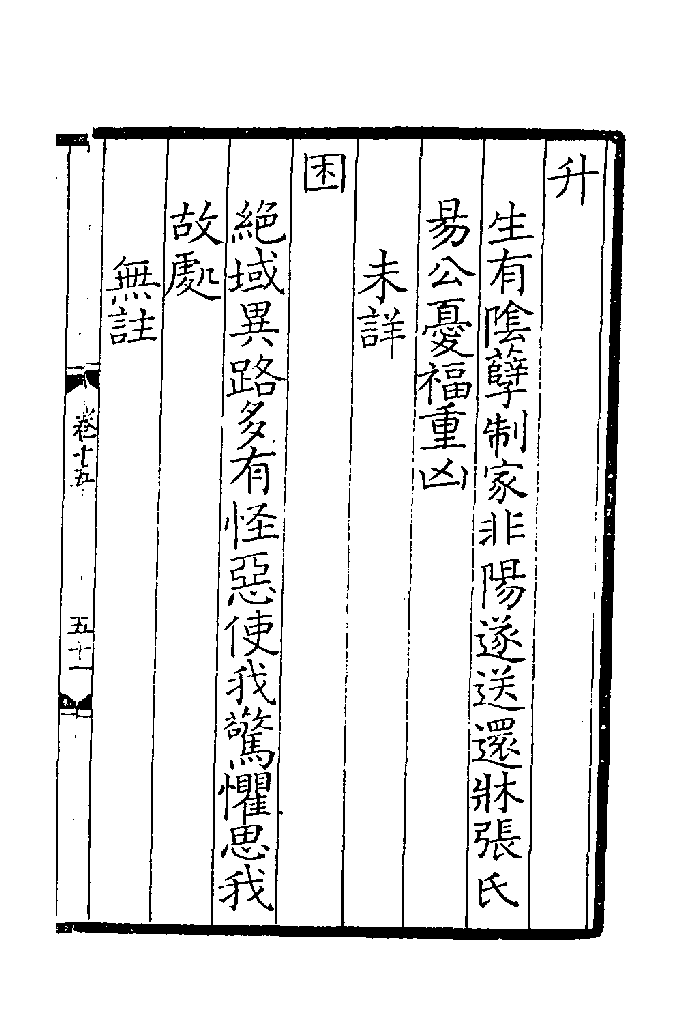 升
生有陰孽制家非陽遂送還牀張氏
易公憂福重凶
未詳
困
絕域異路多有怪惡使我驚懼思我
故處
無註
卷十五
五十一